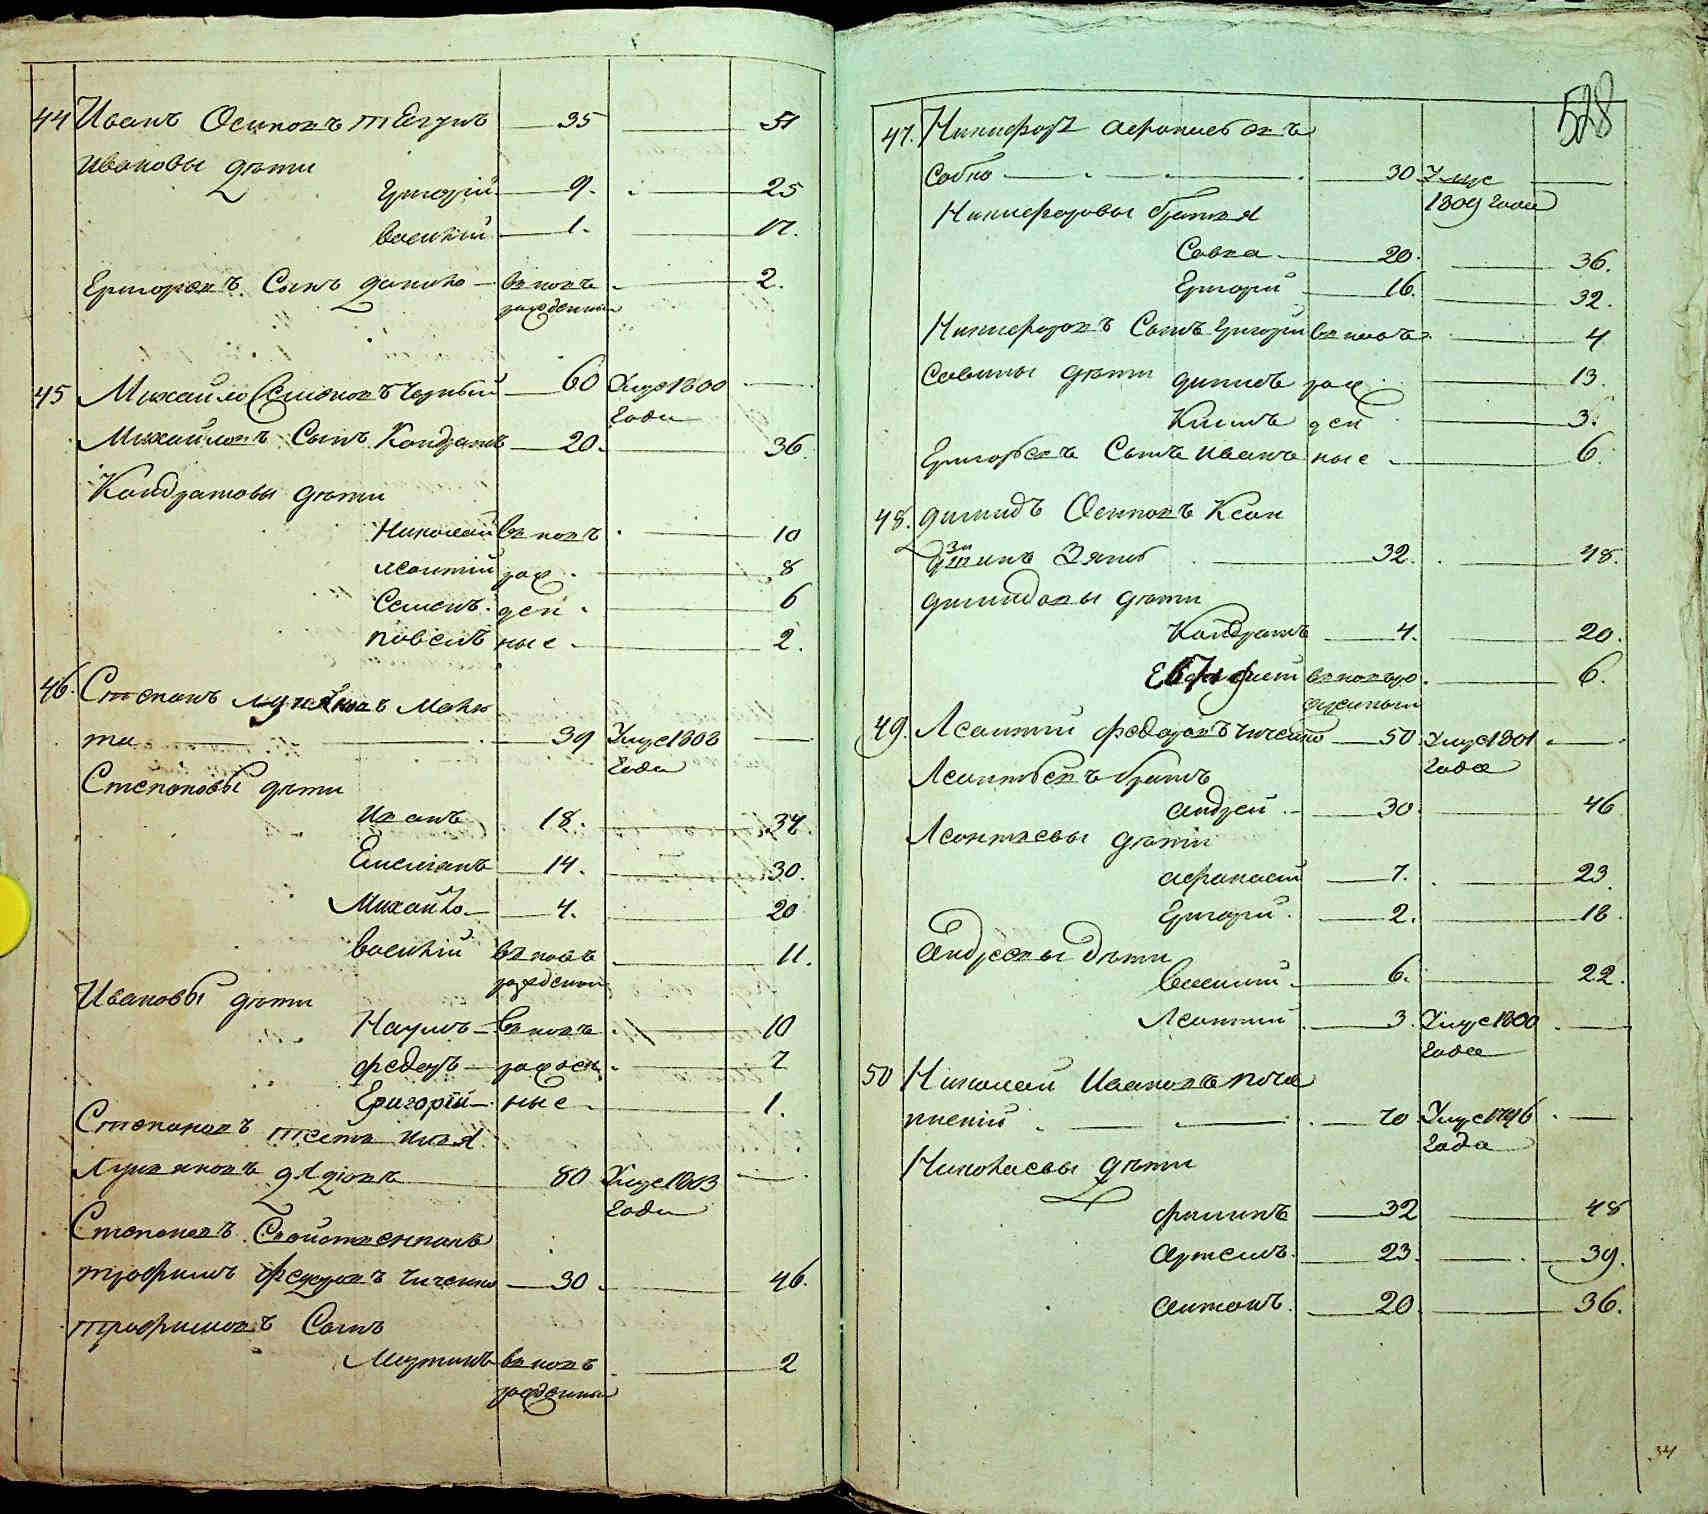 44 Иванъ Осиповъ 35 51
Ивановы дѣти
Григорій 9. 25
Василій 1. 17.
Григорьевъ Сынъ Данило вновь 2.
рожденный
45 Михайло Семеновъ Черный 60 Умре 1800
Года
Михайловъ Сынъ Кондратъ 20. 36.
Кондратовы дѣти
Николай вновь 10
Леонтій рож 8
Семенъ ден 6
Павелъ ные 2.
46. Степанъ
та 39 Умре 1808
Года
Степановы дѣти
Иванъ 18. 34.
Емелianъ 14. 30.
Михайло 4. 20
Василій вновь 11.
рожденный
Ивановы дѣти
Наумъ вновь 10
Федоръ рожден 7
Григорій ные 1.
Степановъ тесть
80 Умре 1813
Года
Степановъ Свойственникъ
Трофимъ Федоровъ Чиченко 30. 46.
Трофимовъ Сынъ
Мартинъ вновь 2
рожденный
528
47. Никифоръ Афанасьевъ
Собко 30 Умре
1809 Года
Никифоровы братья
Савка 20. 36.
Григорій 16. 32.
Никифоровъ Сынъ Григорій вновь 4
Савины дѣти рож 13.
ден 3.
Григорьевъ Сынъ Иванъ ные 6.
48. Демидъ Осиповъ
Зять 32. 48.
Демидовы дѣти
Кондратъ 4. 20.
вновь ро 6.
жденный
49. Леонтій Федоровъ Чиченко 50 Умре 1801
Года
Леонтьевъ братъ
Андрей 30. 46
Леонтьевы дѣти
Афанасій 7. 23.
Григорій 2. 18.
Андреевы дѣти
Василій 6. 22.
Леонтій 3. Умре 1800
Года
50 Николай Ивановъ
70 Умре 1796
Года
Николаевы дѣти
Филипъ 32 48
Артемъ. 23. 39.
Антонъ. 20 36.
34